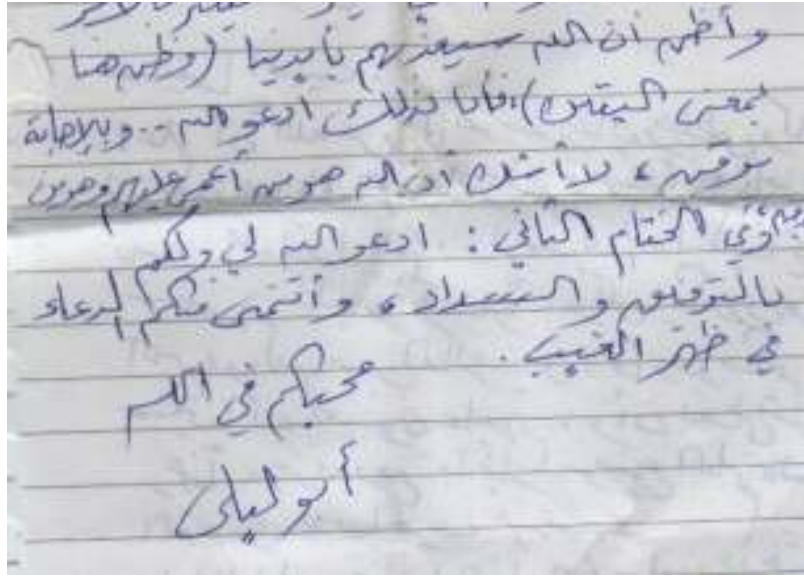 وأظن أن الله سيعذبهم بأيدينا (وظن هنا
بمعنى اليقين)، فأنا لذلك أدعو الله.. وبالإجابة
موقن، لا أشك أن الله هو من أعمى عليهم
وفي الختام الثاني: ادعو الله لي ولكم
بالتوفيق والسداد، وأتمنى منكم الدعاء
في ظهر الغيب.
محبكم في الله
أبو ليلى